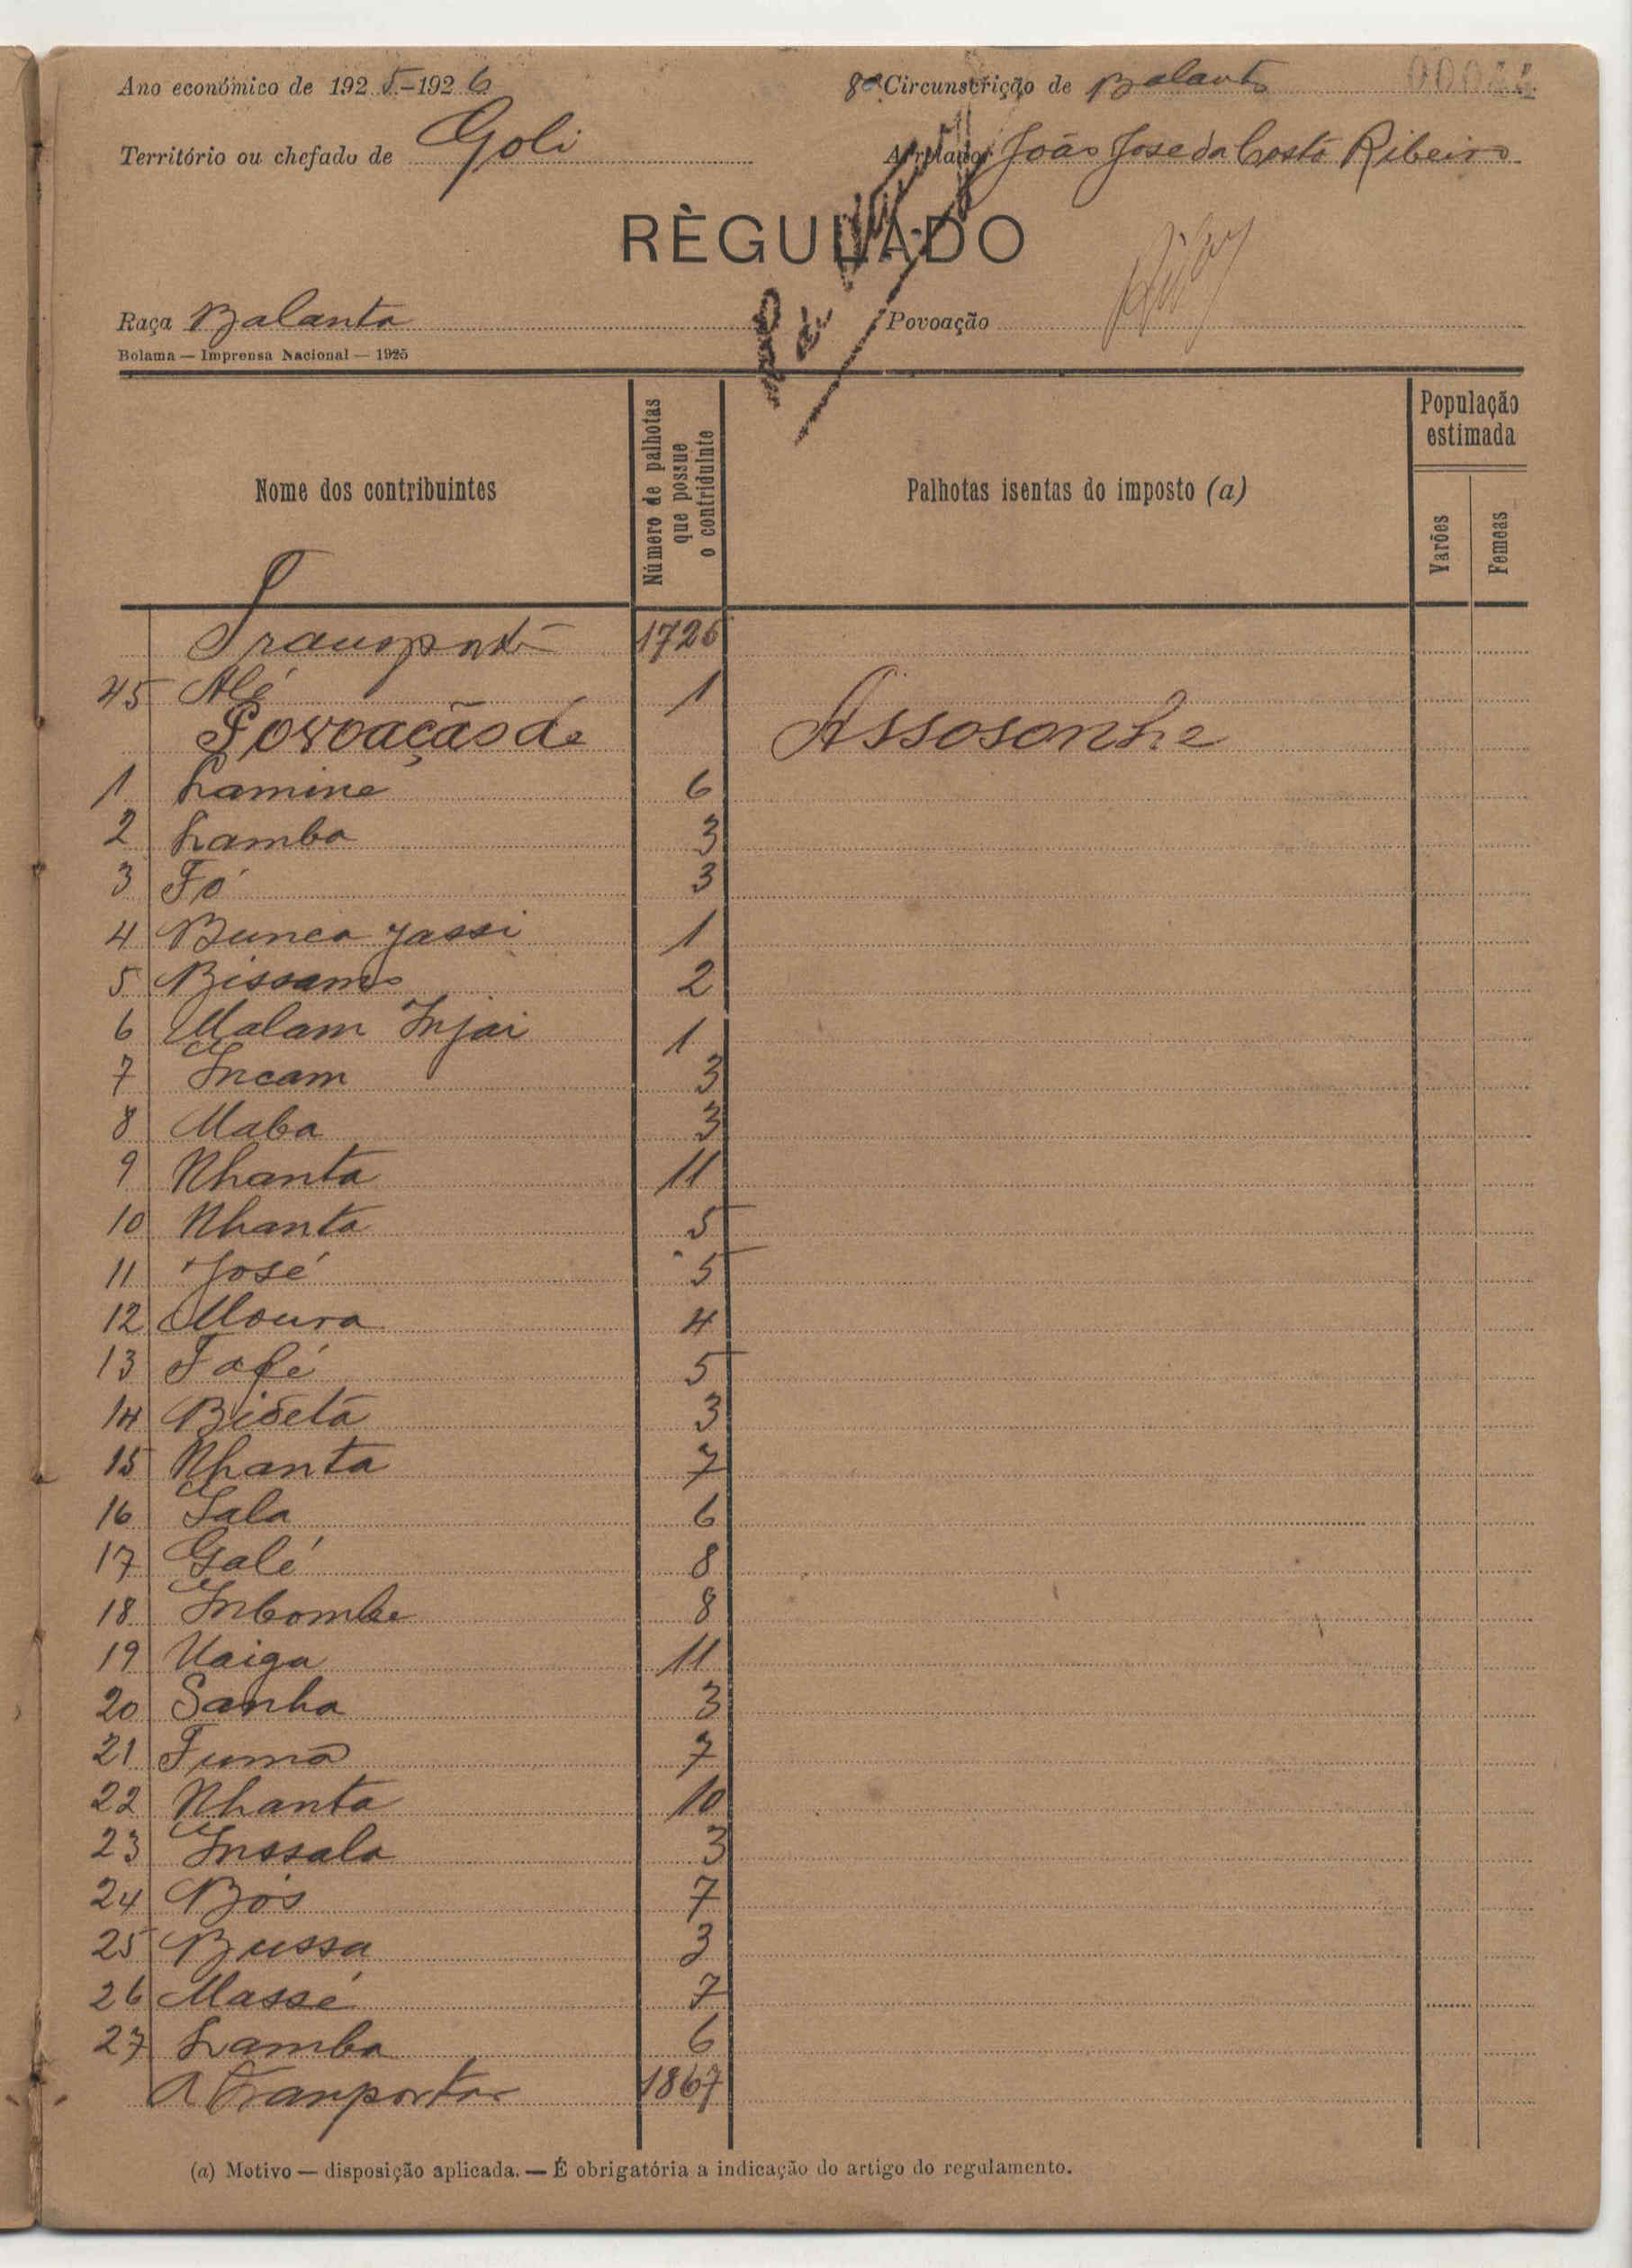 Ano económico de 1925-1926
8ª Circunscrição de Balanta
Território ou chefado de Goli
Arrolador João Jose da Costa Ribeiro
RÈGULADO
Raça Balanta
Povoação
Bolama — Imprensa Nacional — 1925
Nome dos contribuintes
Número de palhotas que possue o contriduinte
Palhotas isentas do imposto (a)
População estimada
Varões
Femeas
Transporte 1726
45 Alé 1
Povoação de Assosonhe
1 Lamine 6
2 Lamba 3
3 Fó 3
4 Bunca Jassi 1
5 Bissam 2
6 Malam Injai 1
7 Incam 3
8 Maba 3
9 Nhanta 11
10 Nhanta 5
11 José 5
12 Moura 4
13 Fafé 5
14 Bidetá 3
15 Nhanta 7
16 Sala 6
17 Galé 8
18 Inbombe 8
19 Uaiga 11
20 Sanha 3
21 Fumá 7
22 Nhanta 10
23 Inssala 3
24 Bós 7
25 Bussa 3
26 Massé 7
27 Lamba 6
A Tranportar 1867
(a) Motivo — disposição aplicada. — É obrigatória a indicação do artigo do regulamento.